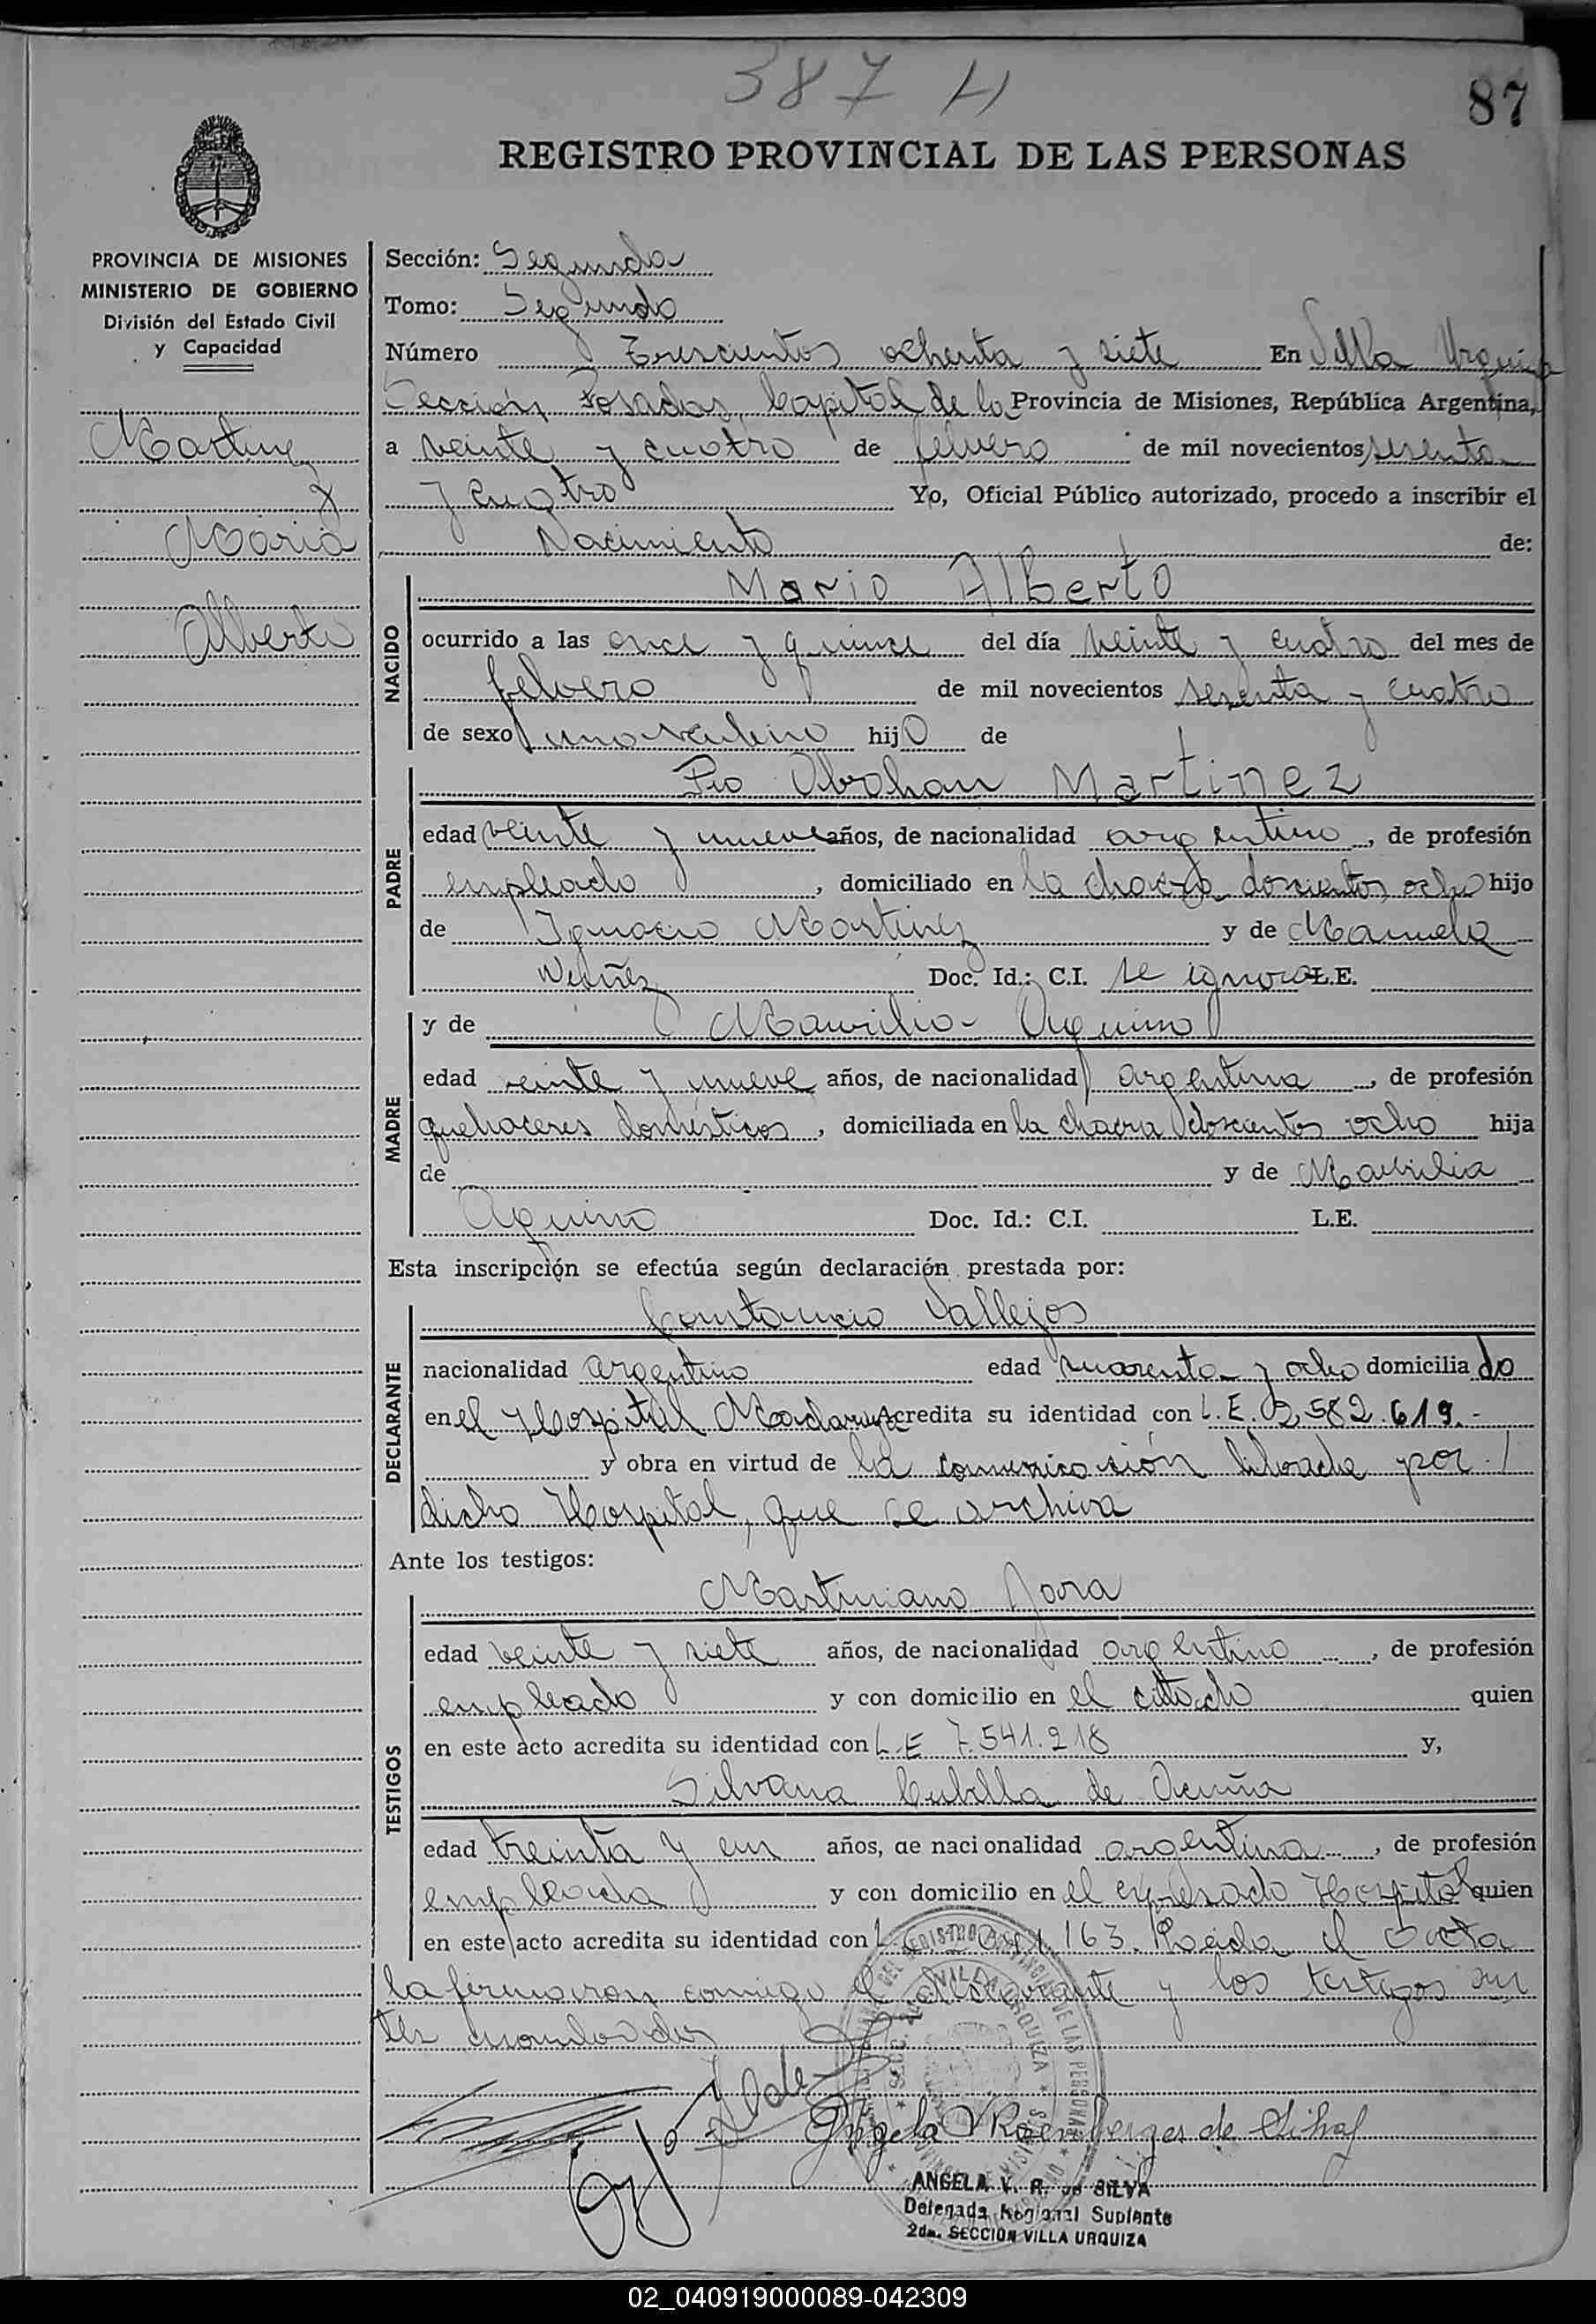 387 H
87
REGISTRO PROVINCIAL DE LAS PERSONAS
PROVINCIA DE MISIONES
MINISTERIO DE GOBIERNO
División del Estado Civil
y Capacidad
Martinez
Mario
Alberto
Sección: Segunda
Tomo: Segundo
Número Trescientos ochenta y siete En Villa Urquiza
Sección Posadas, Capital de la Provincia de Misiones, República Argentina,
a veinte y cuatro de febrero de mil novecientos sesenta
y cuatro Yo, Oficial Público autorizado, procedo a inscribir el
Nacimiento de:
NACIDO
Mario Alberto
ocurrido a las once y quince del día veinte y cuatro del mes de
febrero de mil novecientos sesenta y cuatro
de sexo masculino hijo de
PADRE
Pio Abrahan Martinez
edad veinte y nueve años, de nacionalidad argentino, de profesión
empleado, domiciliado en la chacra doscientos ocho hijo
de Ignacio Martinez y de Manuela
Nuñez Doc. Id.: C.I. se ignora L.E.
MADRE
y de Maurilia Aquino
edad veinte y nueve años, de nacionalidad argentina, de profesión
quehaceres domésticos, domiciliada en la chacra doscientos ocho hija
de y de Maurilia
Aquino Doc. Id.: C.I. L.E.
Esta inscripción se efectúa según declaración prestada por:
DECLARANTE
Constancio Vallejos
nacionalidad argentino edad cuarenta y ocho domiciliado
en el Hospital Madariaga acredita su identidad con L.E. 2.582.619.-
y obra en virtud de la comunicación librada por
dicho Hospital, que se archiva
Ante los testigos:
TESTIGOS
Martiniano Jara
edad veinte y siete años, de nacionalidad argentino, de profesión
empleado y con domicilio en el citado quien
en este acto acredita su identidad con L.E 7.541.218 y,
Silvana Cubilla de Acuña
edad treinta y un años, de nacionalidad argentina, de profesión
empleada y con domicilio en el expresado Hospital quien
en este acto acredita su identidad con 163. Leída el acta
la firmaron conmigo el declarante y los testigos
Angela V Roemberger de Silva
ANGELA V. R. de SILVA
Delegada Regional Suplente
2da. SECCION VILLA URQUIZA
02_040919000089-042309